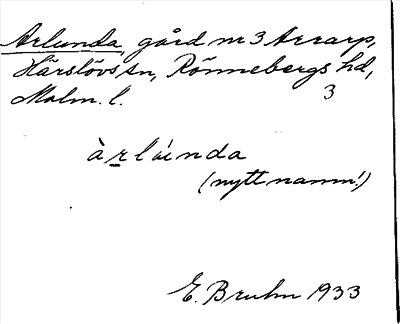 Arlunda, gård nr 3 Arrarp,
Härslövs sn, Rönnebergs hd,
Malm. l. 3
àrlúnda
(nytt namn!)
E. Bruhn 1933